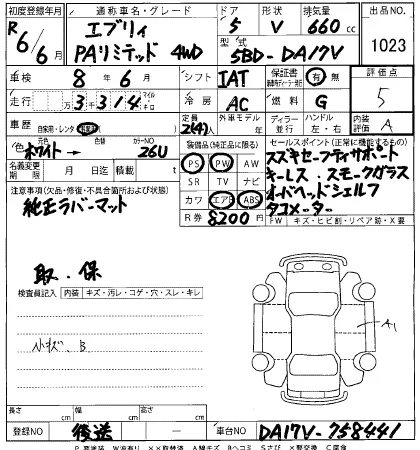 初度登録年月 通称車名・グレード ドア 形状 排気量 出品NO
R6/6月 エブリィ PAリミテッド 4WD 5 V 660cc 1023
型式 5BD-DA17V
車検 8年6月 シフト IAT 保証書 有 無 評価点
走行 33314 マイル キロ 冷房 AC 燃料 G 5
車歴 自家用・レンタ 定員 2(4)人 外車モデル 年 ディーラー 並行 ハンドル 左・右 内装評価 A
色 元色 ホワイト→ 色替 カラーNO 26U
装備品(純正品に限る) セールスポイント(正常に機能するもの)
名義変更期限 月 日迄 積載 t
PS PW AW
SR TV ナビ
カワ エアB ABS
R券 8200円
スズキセーフティサポート
キーレス.スモークガラス
オーバーヘッドシェルフ
タコメーター
FW キズ・ヒビ割・リペア跡・X要
注意事項(欠品・修復・不具合箇所および状態)
純正ラバーマット
取.保
検査員記入 内装 キズ・汚レ・コゲ・穴・スレ・キレ
小キズ.B
A1
長さ cm 幅 cm 高さ cm
登録NO 後送 — 車台NO DA17V-758441
P 要塗装 W波有り ××取替済 A線キズ Bヘコミ Sさび X要交換 C腐食